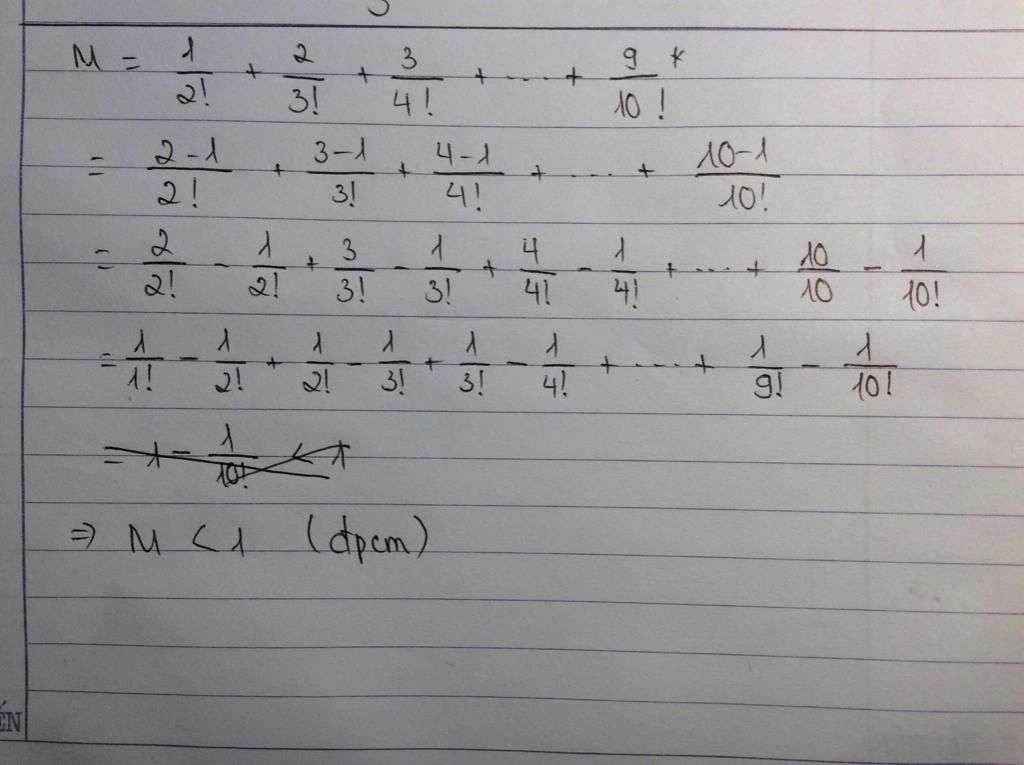 M = 1/2! + 2/3! + 3/4! + .... + 9/10! *
= 2-1/2! + 3-1/3! + 4-1/4! + .... + 10-1/10!
= 2/2! - 1/2! + 3/3! - 1/3! + 4/4! - 1/4! + .... + 10/10 - 1/10!
= 1/1! - 1/2! + 1/2! - 1/3! + 1/3! - 1/4! + .... + 1/9! - 1/10!
= 1 - 1/10! < 1
⇒ M < 1 (đpcm)
ẾN